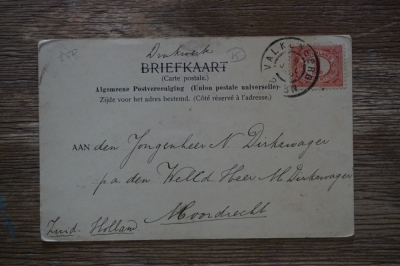 Drukwerk
BRIEFKAART
(Carte postale.)
Algemeene Postvereeniging (Union postale universelle)
Zijde voor het adres bestemd. (Côté réservé à l'adresse.)
VALKENBURG
AAN den Jongenheer N. Dirkzwager
p.a. den Weled Heer M. Dirkzwager
Moordrecht
Zuid-Holland